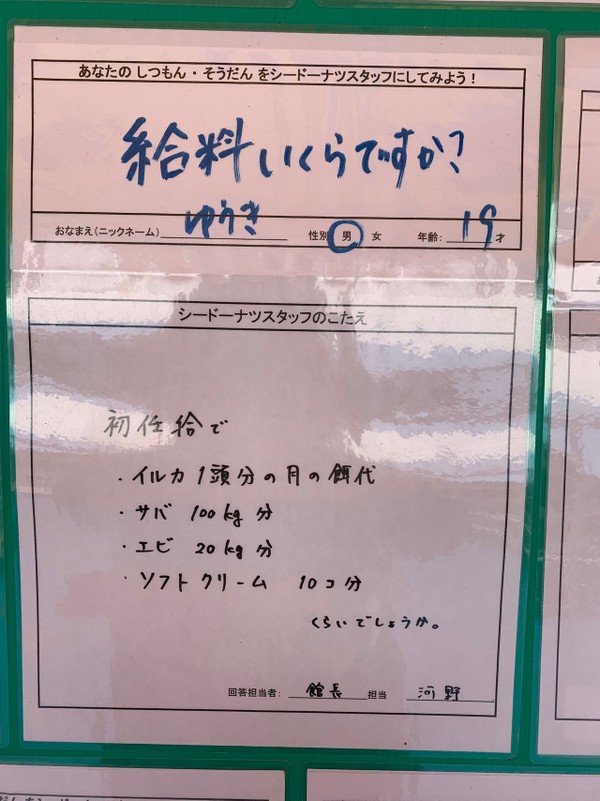 あなたの しつもん・そうだん をシードーナツスタッフにしてみよう！
給料いくらですか?
おなまえ(ニックネーム) ゆうき 性別 男 女 年齢: 19 才
シードーナツスタッフのこたえ
初任給で
・イルカ 1頭分の月の餌代
・サバ 100kg 分
・エビ 20kg 分
・ソフトクリーム 10コ分
くらいでしょうか。
回答担当者: 館長 担当 河野